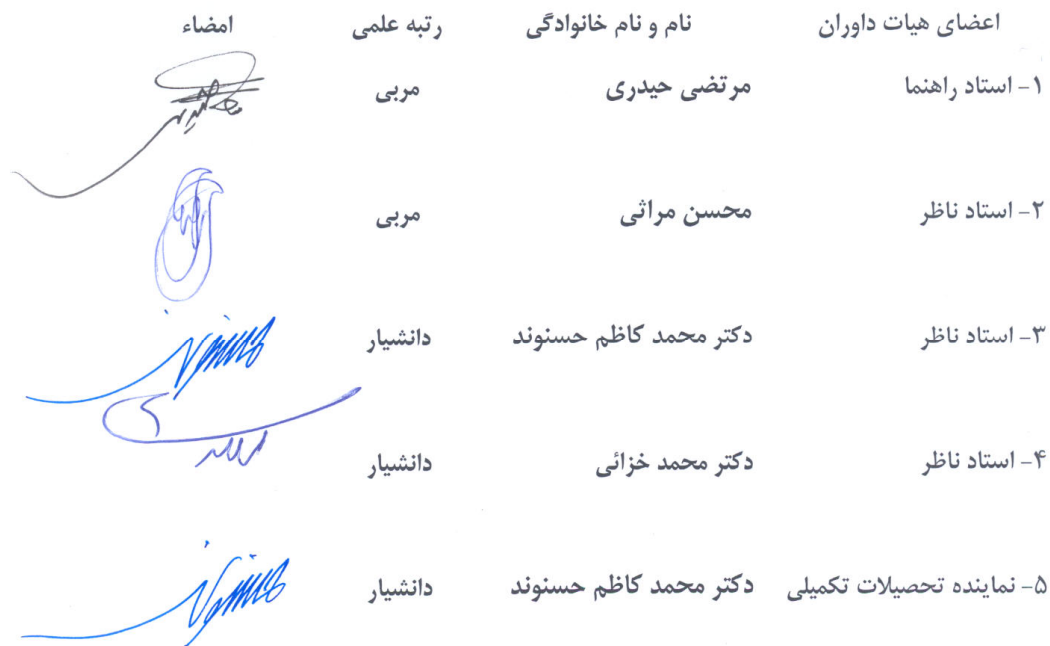 اعضای هیات داوران نام و نام خانوادگی رتبه علمی امضاء
۱- استاد راهنما مرتضی حیدری مربی
۲- استاد ناظر محسن مراثی مربی
۳- استاد ناظر دکتر محمد کاظم حسنوند دانشیار
۴- استاد ناظر دکتر محمد خزائی دانشیار
۵- نماینده تحصیلات تکمیلی دکتر محمد کاظم حسنوند دانشیار